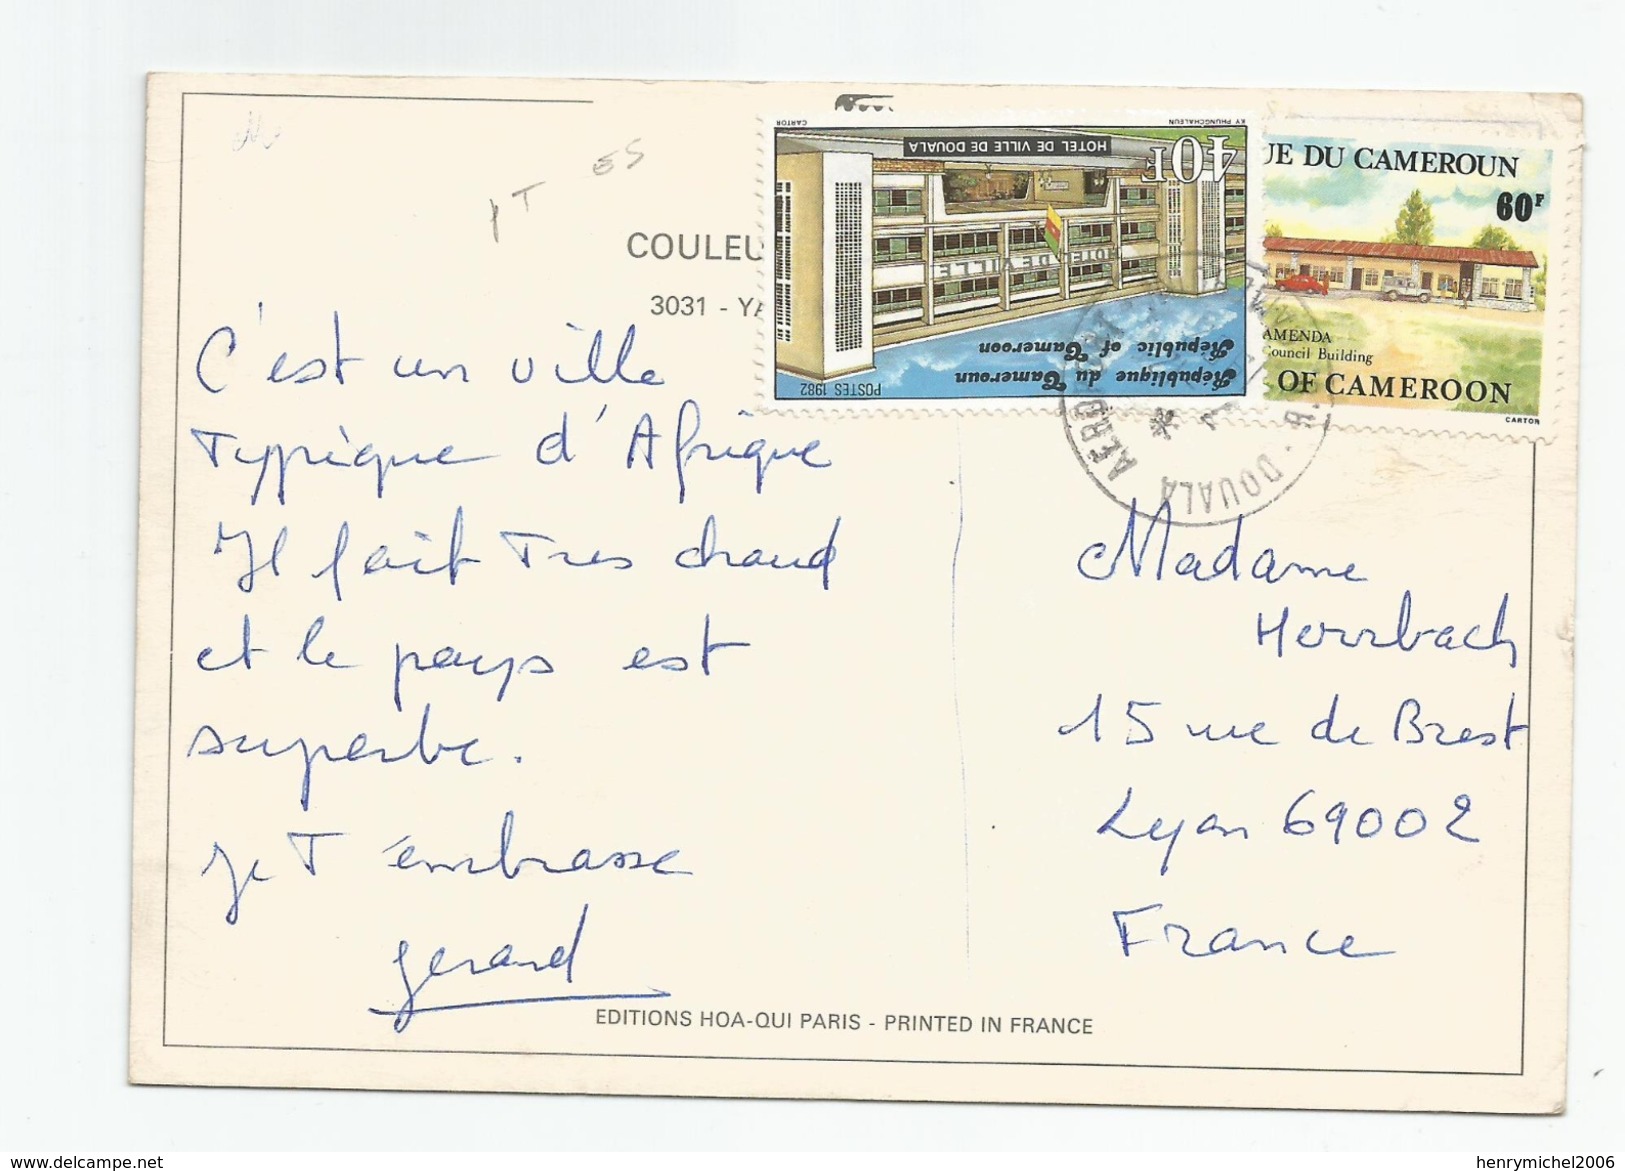 1T ES
COULEU
3031 - YA
C'est un ville
Typique d'Afrique
Il fait Tres chaud
et le pays est
superbe.
Je T'embrasse
gerard
EDITIONS HOA-QUI PARIS - PRINTED IN FRANCE
CARTOR
KY PHUNGCHALEUN
40F
HOTEL DE VILLE DE DOUALA
HOTEL DE VILLE
République of Cameroon
République du Cameroun
POSTES 1982
UE DU CAMEROUN
60F
AMENDA
Council Building
OF CAMEROON
CARTOR
DOUALA
Madame
Herrbach
15 rue de Brest
Lyon 69002
France
www.delcampe.net
henrymichel2006